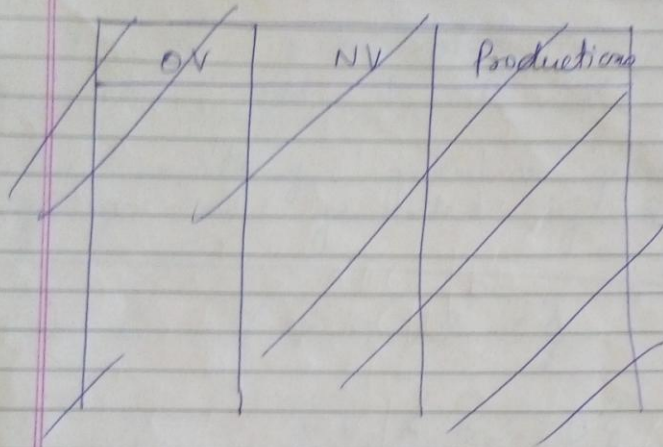 OV NV Productions